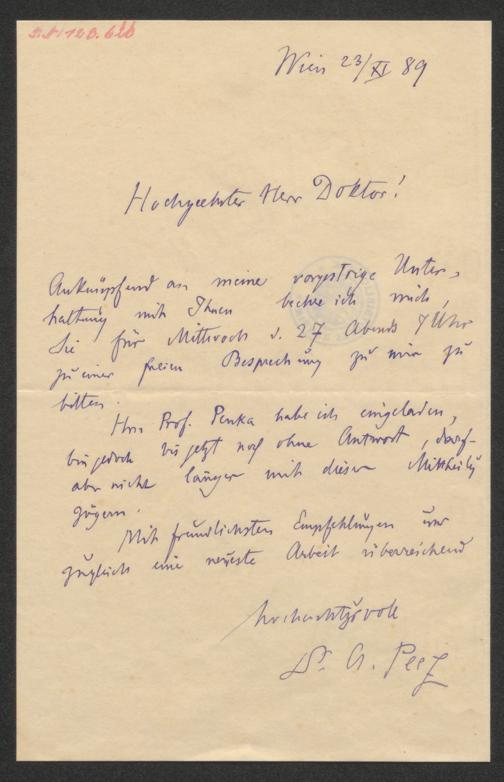 I.N. 120.620
Wien 23/XI 89
Hochgeehrter Herr Doktor!
Anknüpfend an meine vorgestrige Unter-
haltung mit Ihnen beehre ich mich,
Sie für Mittwoch d. 27 Abends 7 Uhr
zu einer freien Besprechung zu mir zu
bitten.
Hrn Prof. Penka habe ich eingeladen,
bin jedoch bis jetzt noch ohne Antwort, darf
aber nicht länger mit dieser Mittheilg
zögern.
Mit freundlichsten Empfehlungen und
zugleich eine neueste Arbeit überreichend
hochachtgsvoll
Dr. A. Peez